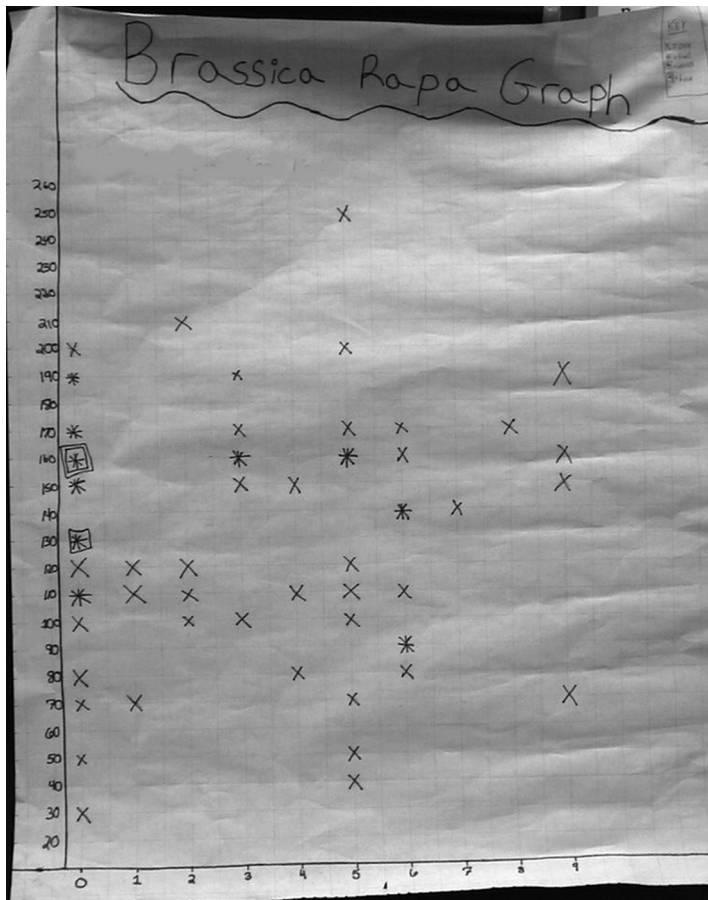 Brassica Rapa Graph
KEY
260
250
240
230
220
210
200
190
180
170
160
150
140
130
120
110
100
90
80
70
60
50
40
30
20
0 1 2 3 4 5 6 7 8 9